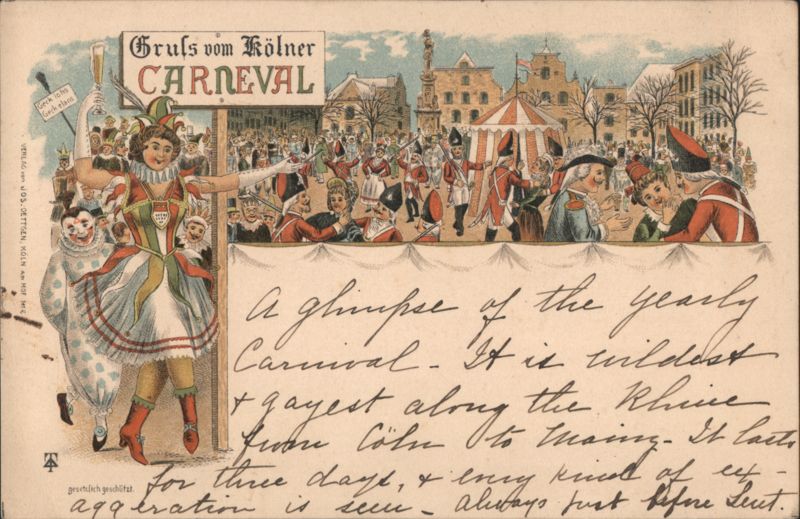 Gruſs vom Kölner
CARNEVAL
Geck loſs
Geck elans
VERLAG von JOS. OETTGEN, KÖLN am HOF
A glimpse of the yearly
Carnival - It is wildest
& gayest along the Rhine
from Cöln to Mainz - It lasts
for three days, & every kind of ex-
aggeration is seen - always just before Lent.
gesetzlich geschützt.